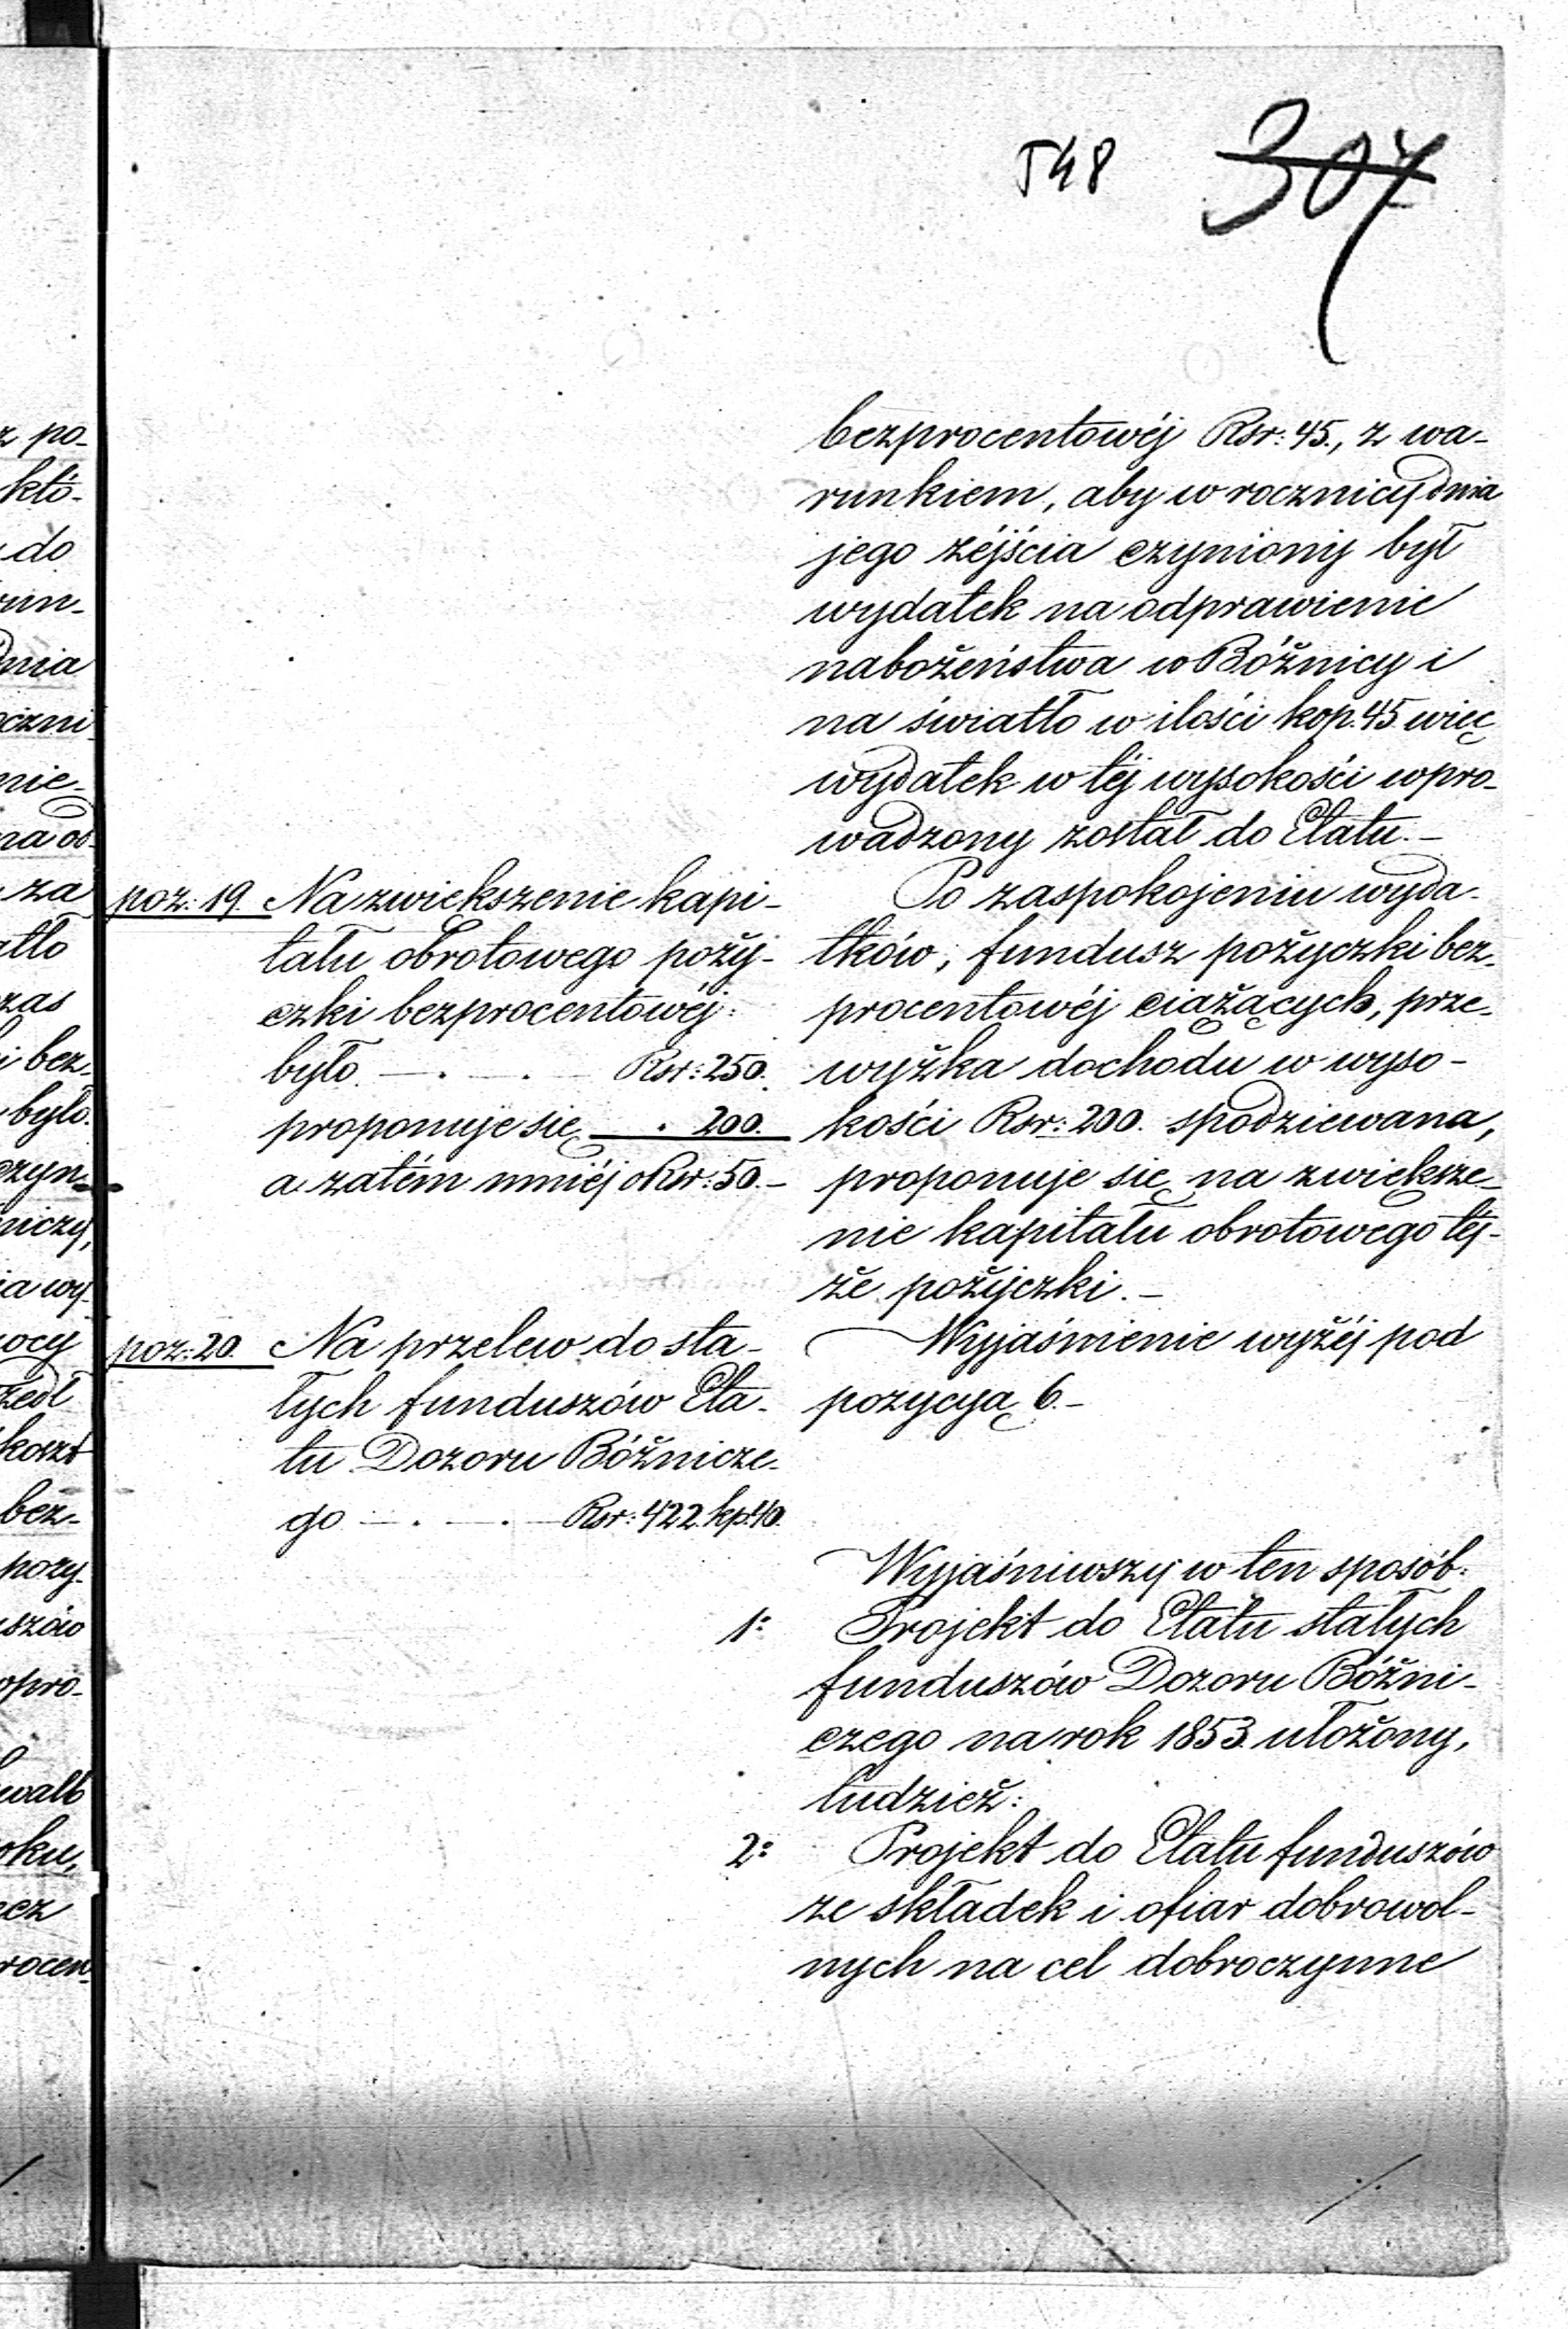 548 307
bezprocentowéj Rsr: 45., z wa-
runkiem, aby w rocznicy dnia
jego zéjścia czyniony był
wydatek na odprawienie
nabożeństwa w Bóżnicy i
na światło w ilości kop. 45 więc
wydatek w téj wysokości wpro-
wadzony został do Etatu. -
poz: 19. Na zwiększenie kapi-
tału obrotowego poży-
czki bezprocentowéj:
było — . — . — Rsr: 250.
proponuje się — . 200.
a zatém mniéj o Rsr: 50. -
Po zaspokojeniu wyda-
tków, fundusz pożyczki bez-
procentowéj ciążących, prze-
wyżka dochodu w wyso-
kości Rsr: 200. spodziewana,
proponuje się na zwiększe-
nie kapitału obrotowego téj-
że pożyczki. -
poz: 20. Na przelew do sta-
łych funduszów Eta-
tu Dozoru Bóżnicze-
go — . — . — Rsr: 422. kp. 40.
Wyjaśnienie wyżéj pod
pozycyą 6. -
Wyjaśniwszy w ten sposób:
1: Projekt do Etatu stałych
funduszów Dozoru Bóżni-
czego na rok 1853. ułożony,
tudzież:
2: Projekt do Etatu funduszów
ze składek i ofiar dobrowol-
nych na cel dobroczynne
z po-
któ-
do
run-
dnia
czni
nie-
na od-
za
atło
zas
i bez-
było.
czyn-
niczy,
ia wy-
ocy
zedł
koszt
bez-
pozy-
szów
opro-
wałb
oku,
ez
rocen-